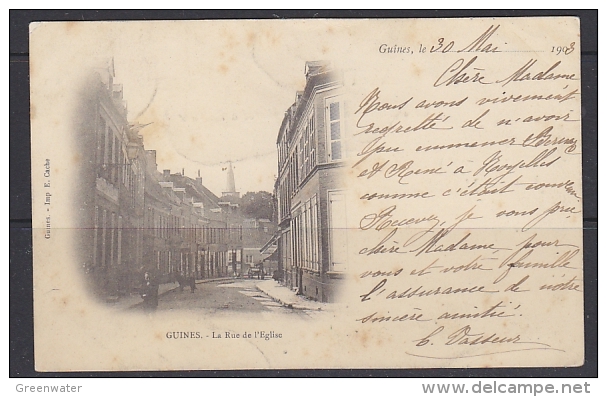 Guines, le 30 Mai 1903
Chère Madame
Nous avons vivement
regretté de n'avoir
pu emmener
et René à Noyelles
comme c'était convenu.
Recevez, je vous prie
chère Madame, pour
vous et votre famille
l'assurance de notre
sincère amitié.
C. Vasseur
Guines. - Imp E. Cache
GUINES. - La Rue de l'Eglise
Greenwater
delcampe.net